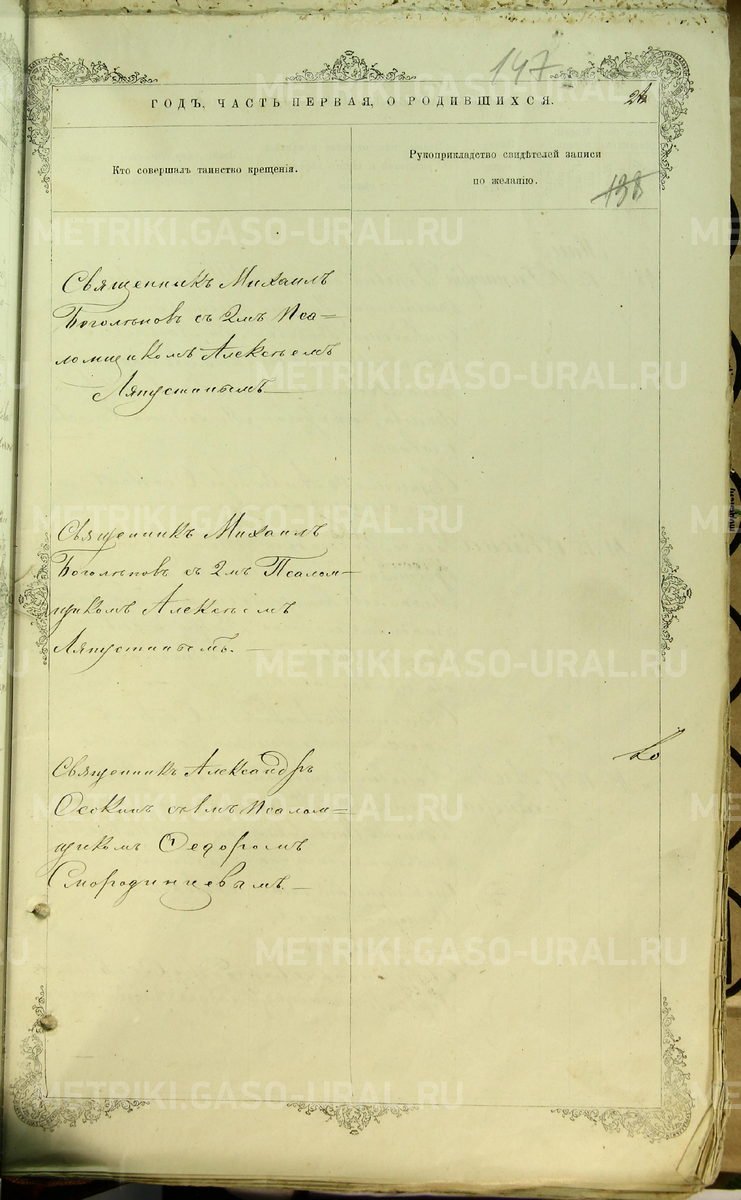 147
ГОДЪ, ЧАСТЬ ПЕРВАЯ, О РОДИВШИХСЯ.
Кто совершалъ таинство крещенія.
Рукоприкладство свидѣтелей записи
по желанію.
138
Священникъ Михаилъ
Боголѣповъ съ 2мъ Пса-
ломщикомъ Алексѣемъ
Ляпустинымъ
Священникъ Михаилъ
Боголѣповъ съ 2мъ Псалом-
щикомъ Алексѣемъ
Ляпустинымъ.
Священникъ Александръ
съ 1мъ Псалом-
щикомъ Ѳедоромъ
Смородинцевымъ.
METRIKI.GASO-URAL.RU